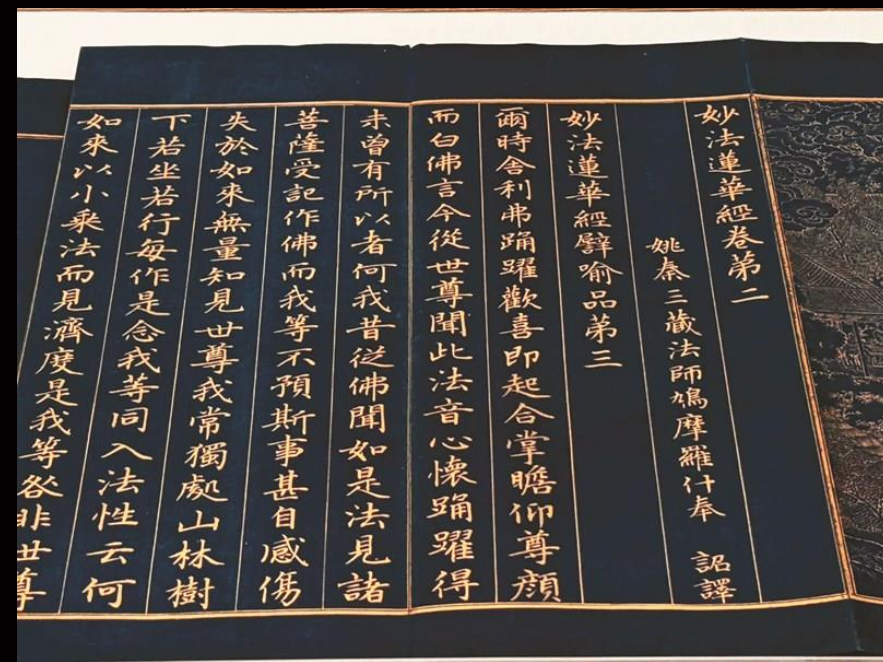 妙法蓮華經卷第二
姚秦三藏法師鳩摩羅什奉　詔譯
妙法蓮華經譬喻品第三
爾時舍利弗踊躍歡喜即起合掌瞻仰尊顏
而白佛言今從世尊聞此法音心懷踊躍得
未曾有所以者何我昔從佛聞如是法見諸
菩薩受記作佛而我等不預斯事甚自感傷
失於如來無量知見世尊我常獨處山林樹
下若坐若行每作是念我等同入法性云何
如來以小乘法而見濟度是我等咎非世尊